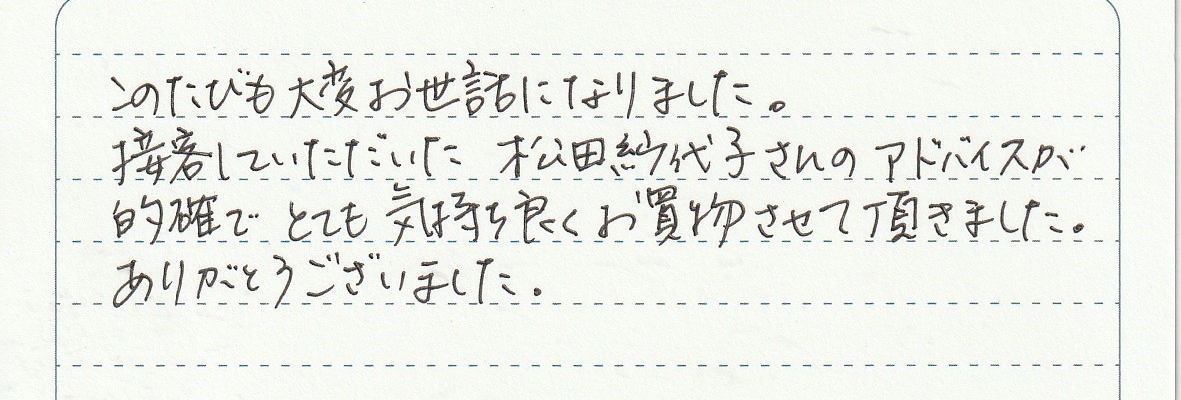 このたびも大変お世話になりました。
接客していただいた 松田紗代子さんのアドバイスが
的確で とても 気持ち良く お買物させて頂きました。
ありがとうございました。